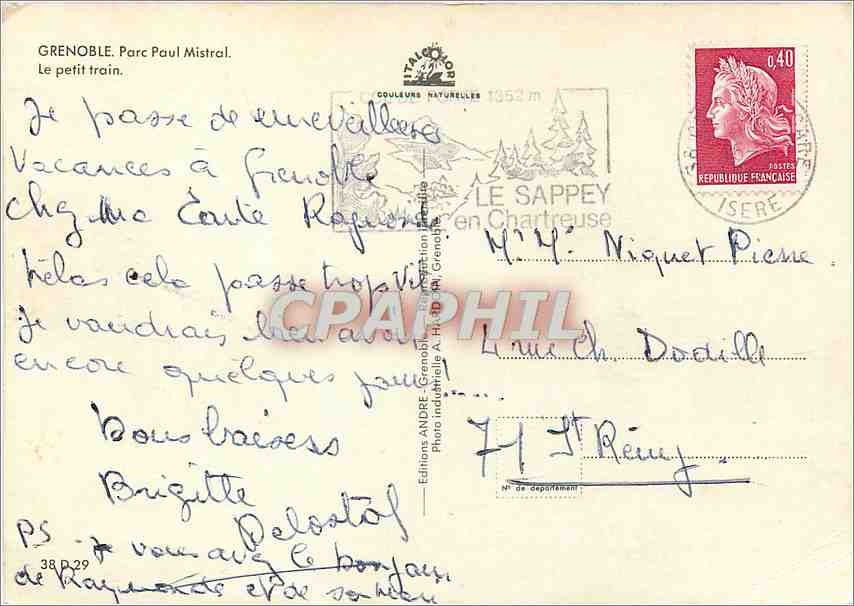 GRENOBLE. Parc Paul Mistral.
Le petit train.
ITALCOLOR
COULEURS NATURELLES
1352 m
LE SAPPEY
en Chartreuse
0,40
POSTES
REPUBLIQUE FRANÇAISE
ISERE
Je passe de merveilleuses
Vacances à Grenoble
Chez ma Tante Raymonde
hélas cela passe trop vite
Je voudrais bien avoir
encore quelques jours!.....
Bons baisers
Brigitte
PS
Je vous avez le bonjour
de Raymonde et de son
38 D 29
Editions ANDRE - Grenoble - Reproduction interdite
Photo industrielle A. HARDOIN, Grenoble
Mr Me Niquet Pierre
4 rue Ch. Dodille
71 St Rémy
N° de département
CPAPHIL